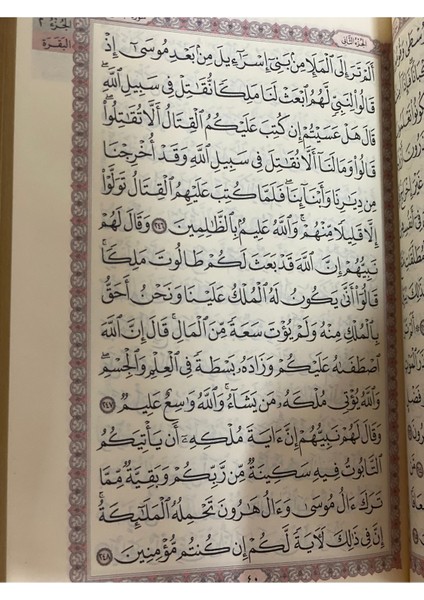 الجزء ٢
البقرة
الجزء الثاني
أَلَمْ تَرَ إِلَى ٱلْمَلَإِ مِنۢ بَنِىٓ إِسْرَٰٓءِيلَ مِنۢ بَعْدِ مُوسَىٰٓ إِذْ
قَالُوا۟ لِنَبِىٍّ لَّهُمُ ٱبْعَثْ لَنَا مَلِكًا نُّقَٰتِلْ فِى سَبِيلِ ٱللَّهِ ۖ
قَالَ هَلْ عَسَيْتُمْ إِن كُتِبَ عَلَيْكُمُ ٱلْقِتَالُ أَلَّا تُقَٰتِلُوا۟ ۖ
قَالُوا۟ وَمَا لَنَآ أَلَّا نُقَٰتِلَ فِى سَبِيلِ ٱللَّهِ وَقَدْ أُخْرِجْنَا
مِن دِيَٰرِنَا وَأَبْنَآئِنَا ۖ فَلَمَّا كُتِبَ عَلَيْهِمُ ٱلْقِتَالُ تَوَلَّوْا۟
إِلَّا قَلِيلًا مِّنْهُمْ ۗ وَٱللَّهُ عَلِيمٌۢ بِٱلظَّٰلِمِينَ ٢٤٦ وَقَالَ لَهُمْ
نَبِيُّهُمْ إِنَّ ٱللَّهَ قَدْ بَعَثَ لَكُمْ طَالُوتَ مَلِكًا ۚ
قَالُوٓا۟ أَنَّىٰ يَكُونُ لَهُ ٱلْمُلْكُ عَلَيْنَا وَنَحْنُ أَحَقُّ
بِٱلْمُلْكِ مِنْهُ وَلَمْ يُؤْتَ سَعَةً مِّنَ ٱلْمَالِ ۚ قَالَ إِنَّ ٱللَّهَ
ٱصْطَفَىٰهُ عَلَيْكُمْ وَزَادَهُۥ بَسْطَةً فِى ٱلْعِلْمِ وَٱلْجِسْمِ ۖ
وَٱللَّهُ يُؤْتِى مُلْكَهُۥ مَن يَشَآءُ ۚ وَٱللَّهُ وَٰسِعٌ عَلِيمٌ ٢٤٧
وَقَالَ لَهُمْ نَبِيُّهُمْ إِنَّ ءَايَةَ مُلْكِهِۦٓ أَن يَأْتِيَكُمُ
ٱلتَّابُوتُ فِيهِ سَكِينَةٌ مِّن رَّبِّكُمْ وَبَقِيَّةٌ مِّمَّا
تَرَكَ ءَالُ مُوسَىٰ وَءَالُ هَٰرُونَ تَحْمِلُهُ ٱلْمَلَٰٓئِكَةُ ۚ
إِنَّ فِى ذَٰلِكَ لَءَايَةً لَّكُمْ إِن كُنتُم مُّؤْمِنِينَ ٢٤٨
٤٠